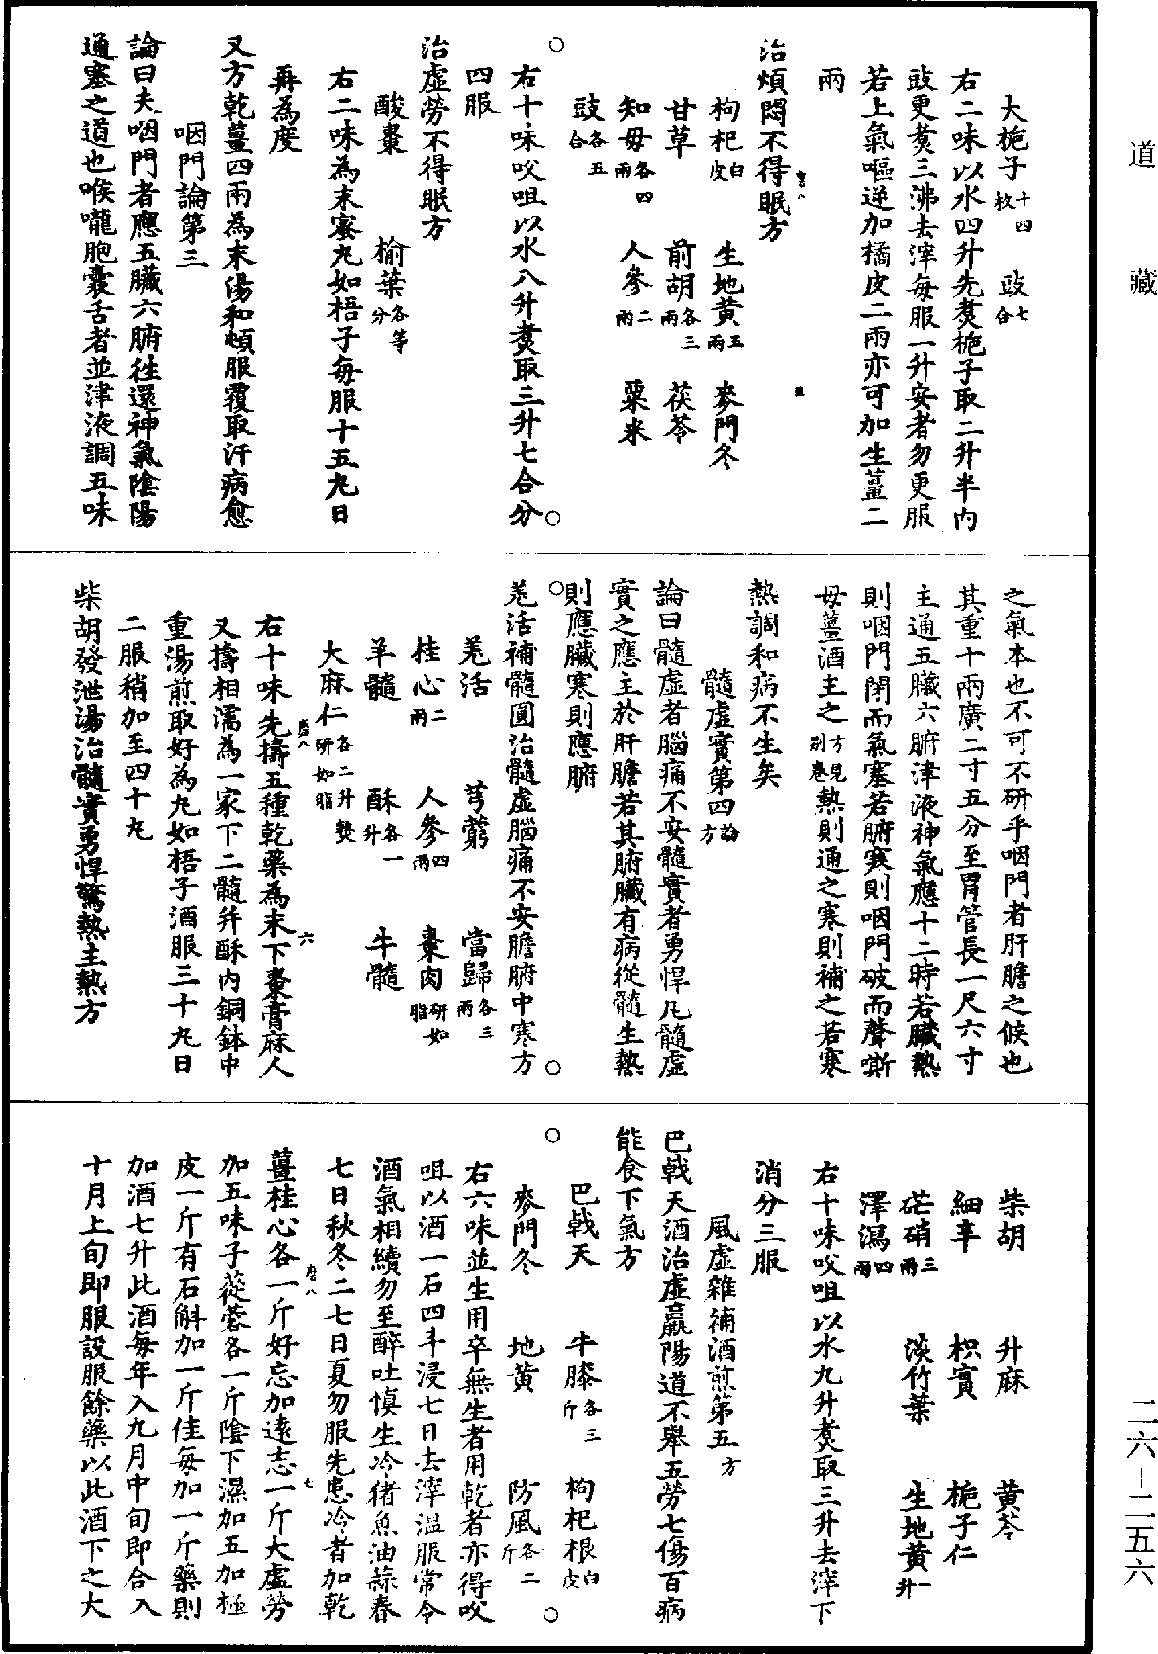 道藏
大梔子十四枚　豉七合
右二味以水四升先煑梔子取二升半内
豉更煑三沸去滓每服一升安者勿更服
若上氣嘔逆加橘皮二兩亦可加生薑二
兩
治煩悶不得眠方
枸杞白皮　生地黄五兩　麥門冬
甘草　前胡各三兩　茯苓
知母各四兩　人參二兩　粟米
豉各五合
右十味㕮咀以水八升煑取三升七合分
四服
治虛勞不得眠方
酸棗　榆葉各等分
右二味為末蜜丸如梧子每服十五丸日
再為度
又方乾薑四兩為末湯和頓服覆取汗病愈
咽門論第三
論曰夫咽門者應五臟六腑往還神氣陰陽
通塞之道也喉嚨胞囊舌者並津液調五味
之氣本也不可不研乎咽門者肝膽之候也
其重十兩廣二寸五分至胃管長一尺六寸
主通五臟六腑津液神氣應十二時若臟熱
則咽門閉而氣塞若腑寒則咽門破而聲嘶
母薑酒主之方見别卷熱則通之寒則補之若寒
熱調和病不生矣
髓虛實第四論方
論曰髓虛者腦痛不安髓實者勇悍凡髓虛
實之應主於肝膽若其腑臟有病從髓生熱
則應臟寒則應腑
羌活補髓圓治髓虛腦痛不安膽腑中寒方
羌活　芎藭　當歸各三兩
桂心二兩　人參四兩　棗肉研如脂
羊髓　酥各一升　牛髓
大麻仁各二升熬研如脂
右十味先擣五種乾藥為末下棗膏麻人
又擣相濡為一家下二髓并酥内銅鉢中
重湯煎取好為丸如梧子酒服三十丸日
二服稍加至四十丸
柴胡發泄湯治髓實勇悍驚熱主熱方
柴胡　升麻　黄芩
細辛　枳實　梔子仁
芒硝三兩　淡竹葉　生地黄一升
澤瀉四兩
右十味㕮咀以水九升煑取三升去滓下
消分三服
風虛雜補酒煎第五方
巴戟天酒治虛羸陽道不舉五勞七傷百病
能食下氣方
巴戟天　牛膝各三斤　枸杞根白皮
麥門冬　地黄　防風各二斤
右六味並生用卒無生者用乾者亦得㕮
咀以酒一石四斗浸七日去滓溫服常令
酒氣相續勿至醉吐慎生冷猪魚油蒜春
七日秋冬二七日夏勿服先患冷者加乾
薑桂心各一斤好忘加遠志一斤大虛勞
加五味子蓯蓉各一斤陰下濕加五加根
皮一斤有石斛加一斤佳每加一斤藥則
加酒七升此酒每年入九月中旬即合入
十月上旬即服設服餘藥以此酒下之大
二六－二五六